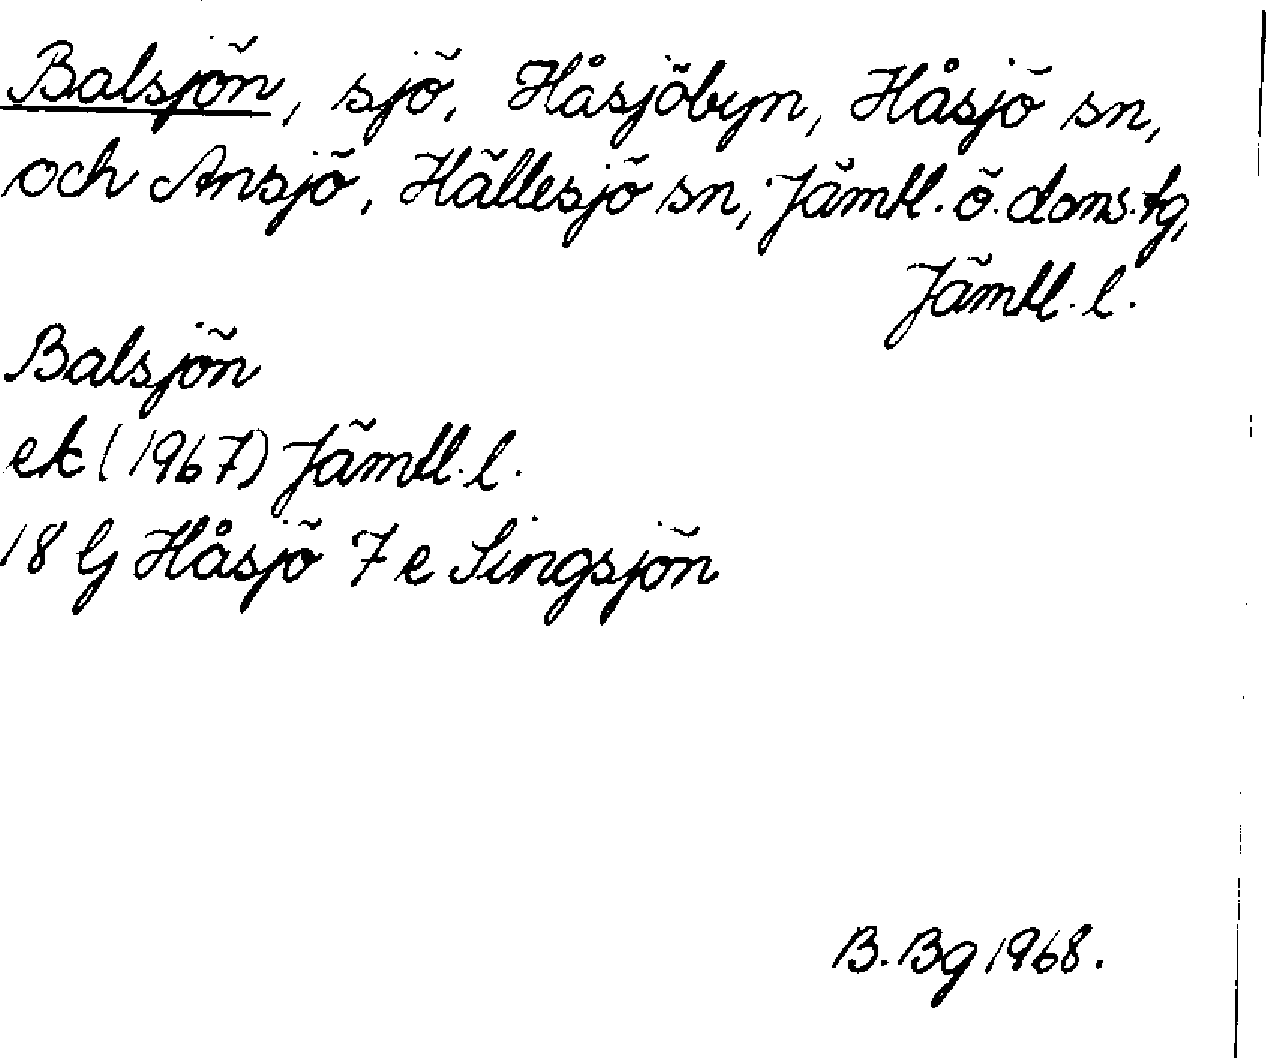 Balsjön, sjö, Håsjöbyn, Håsjö sn,
och Ansjö, Hällesjö sn, Jämtl. ö. doms. tg,
Jämtl. l.
Balsjön
ek (1967) Jämtl. l.
18 G Håsjö 7 e Singsjön
B. Bg 1968.